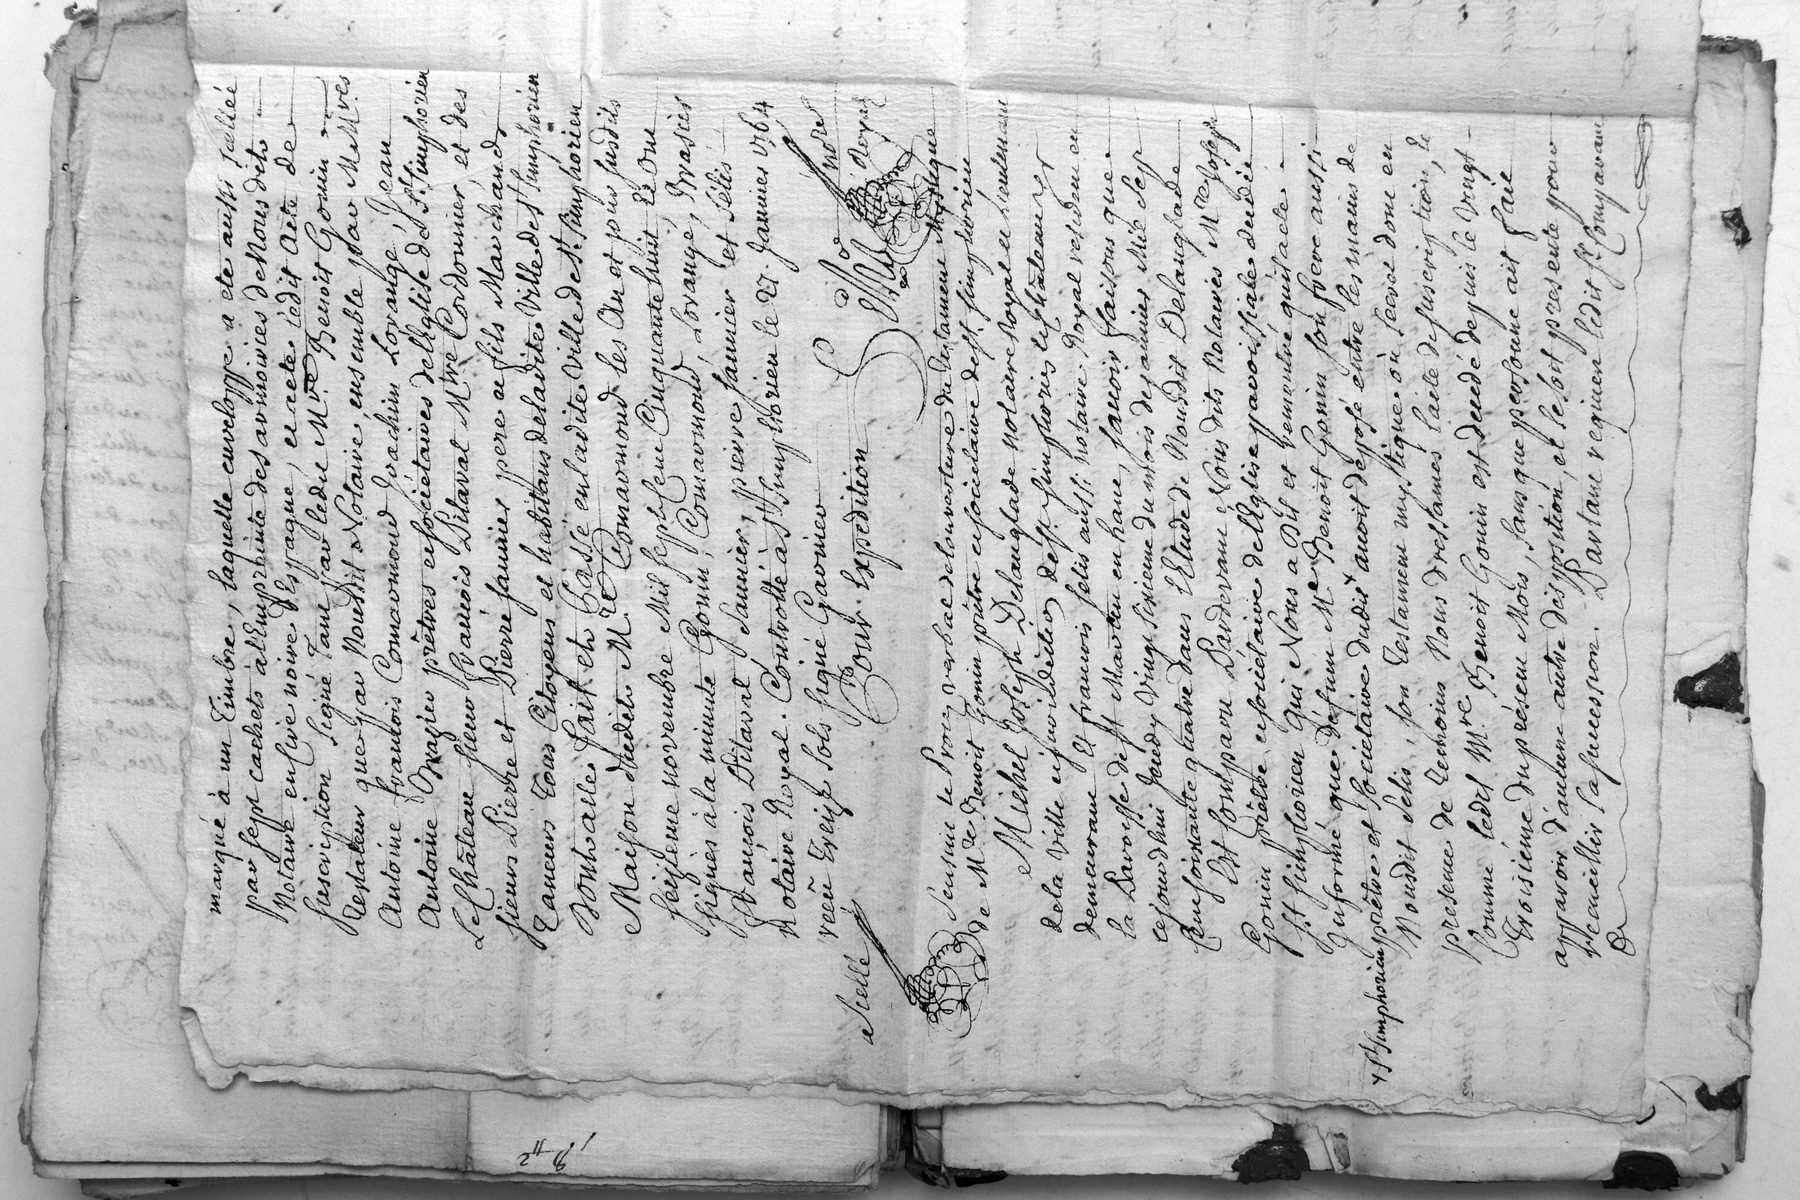 marqué à un Timbre, laquelle enveloppe a été aussi scellée
par sept cachets à l'Empreinte des armoiries de Nous dits
Notaire en Cire noire d'espagne, et a été ledit acte de
suscription signé tant par ledit M.re Benoit Gonin
Testateur que par Nousdit Notaire, ensemble par M.e M.res
Antoine François Comarmond Joachim Lorange, Jean
Antoine Grazier prêtres et sociétaires de l'église de St. Simphorien
Le Château sieur François Pitaval M.tre Cordonnier, et des
sieurs Pierre et Pierre Jannier pere et fils Marchands
Tanneurs Tous Citoyens et habitans de la dite Ville de St. Simphorien
Dont acte fait et Passé en la dite Ville de St. Simphorien
Maison dudit M.re Comarmond les An et jour susdits
seizieme novembre Mil sept Cent Cinquante huit et ont
signés à la minute Gonin, Comarmond, Lorange, Grasier
François Pitaval Jannier, pierre Jannier et Félis
Notaire Royal. Controllé à St. Simphorien le 21 Janvier 1764
reçu treize sols signé Gavinier
Pour Expedition
scellé
no.re Royal
Sensuit le Procez verbal de louverture du testament Mystique
de M.re Benoit Gonin prêtre et sociétaire de St. Simphorien
Michel Joseph Delanglade notaire Royal et Lieutenant
de la Ville et jurisdiction de St. Simphorien le Château y
demeurant Et francois felis aussi notaire Royal resident en
la Paroisse de St Martin en haut, sçavoir faisons que
cejourdhui Jeudy Vingt sixieme du mois de janvier Mil sept
Cent soixante quatre dans l'Etude de Nousdit Delanglade
Est Comparu Pardevant Nous dits Notaires M.re Joseph
Gonin prêtre et sociétaire de l'Eglise paroissiale dudit
St. Simphorien qui Nous a Dit et remontré quil a été
Informé que Défunt M.re Benoit Gonin son frere aussi
prêtre et sociétaire dudit × avoit déposé entre les mains de
× St. Simphorien
Nousdit felis, son Testament mystique ou secret dont en
presence de temoins Nous dressames l'acte de suscription, et
Comme ledit M.re Benoit Gonin est decedé depuis le Vingt
troisiéme du présent Mois, sans que personne ait fait
apparoir d'autune autre disposition, et le soit presenté pour
recueillir sa succession. Partant requiert ledit S.r Comparant